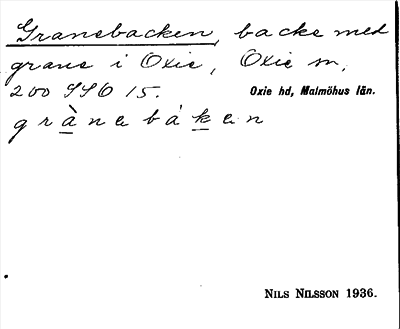 Granebacken, backe med
grane i Oxie, Oxie sn,
200 SSO 15.
Oxie hd, Malmöhus län.
g r à n e b á k e n
NILS NILSSON 1936.